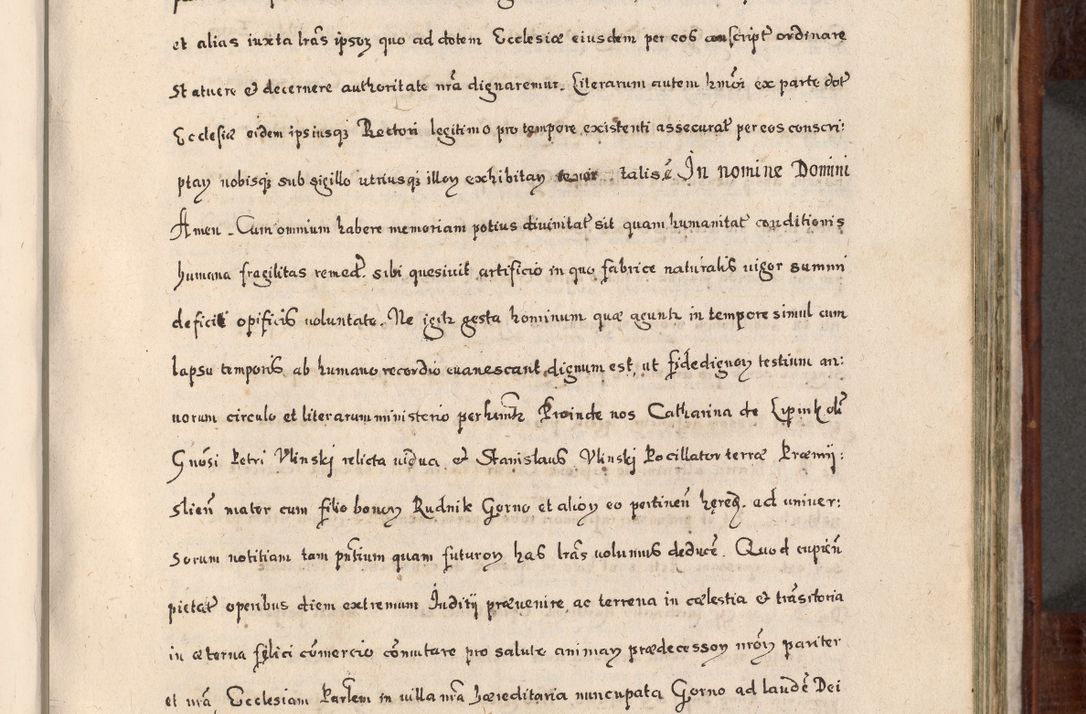 et alias iuxta lras ipsoꝝ quo ad dotem Ecclesiæ eiusdem per eos conscript ordinare
Statuere & decernere authoritate nrã dignaremur. Literarum autem hmõi ex parte dot
Ecclesiæ eidem ipsiusqꝫ Rectori legitimo pro tempore existenti assecurat per eos conscri:
ptaꝝ nobisqꝫ sub sigillo utriusqꝫ illoꝝ exhibitaꝝ tenor talis ẽ. In nomine Domini
Amen. Cum omnium habere memoriam potius divinitat sit quam humanitat conditionis
humana fragilitas remed. sibi quesivit artificio in quo fabrice naturalis vigor summi
deficit opificis voluntate. Ne igitr gesta hominum quæ aguntr in tempore simul cum
lapsu temporis ab humano recordio evanescant dignum est, ut fidedignoꝝ testium an:
norum circulo et literarum ministerio Proinde nos Catharina de
Gnõsi Petri Vlinski relicta vidua & Stanislaus Vlinski Pocillator terræ Præmij:
slien mater cum filio bonoꝝ Rudnik Gorno et alioꝝ eo pertinen hęred. ad univer:
sorum notitiam tam pñtium quam futuroꝝ has lras volumus deducẽ. Quod cupien
pietat operibus diem extremum Juditij prævenire ac terrena in cælestia & trãsitoria
in æterna fęlici cõmercio cõmutare pro salute animaꝝ prædecessoꝝ nrõꝝ pariter
et nrã Ecclesiam Parlem in villa nrã hæreditaria nuncupata Gorno ad laudẽ Dei